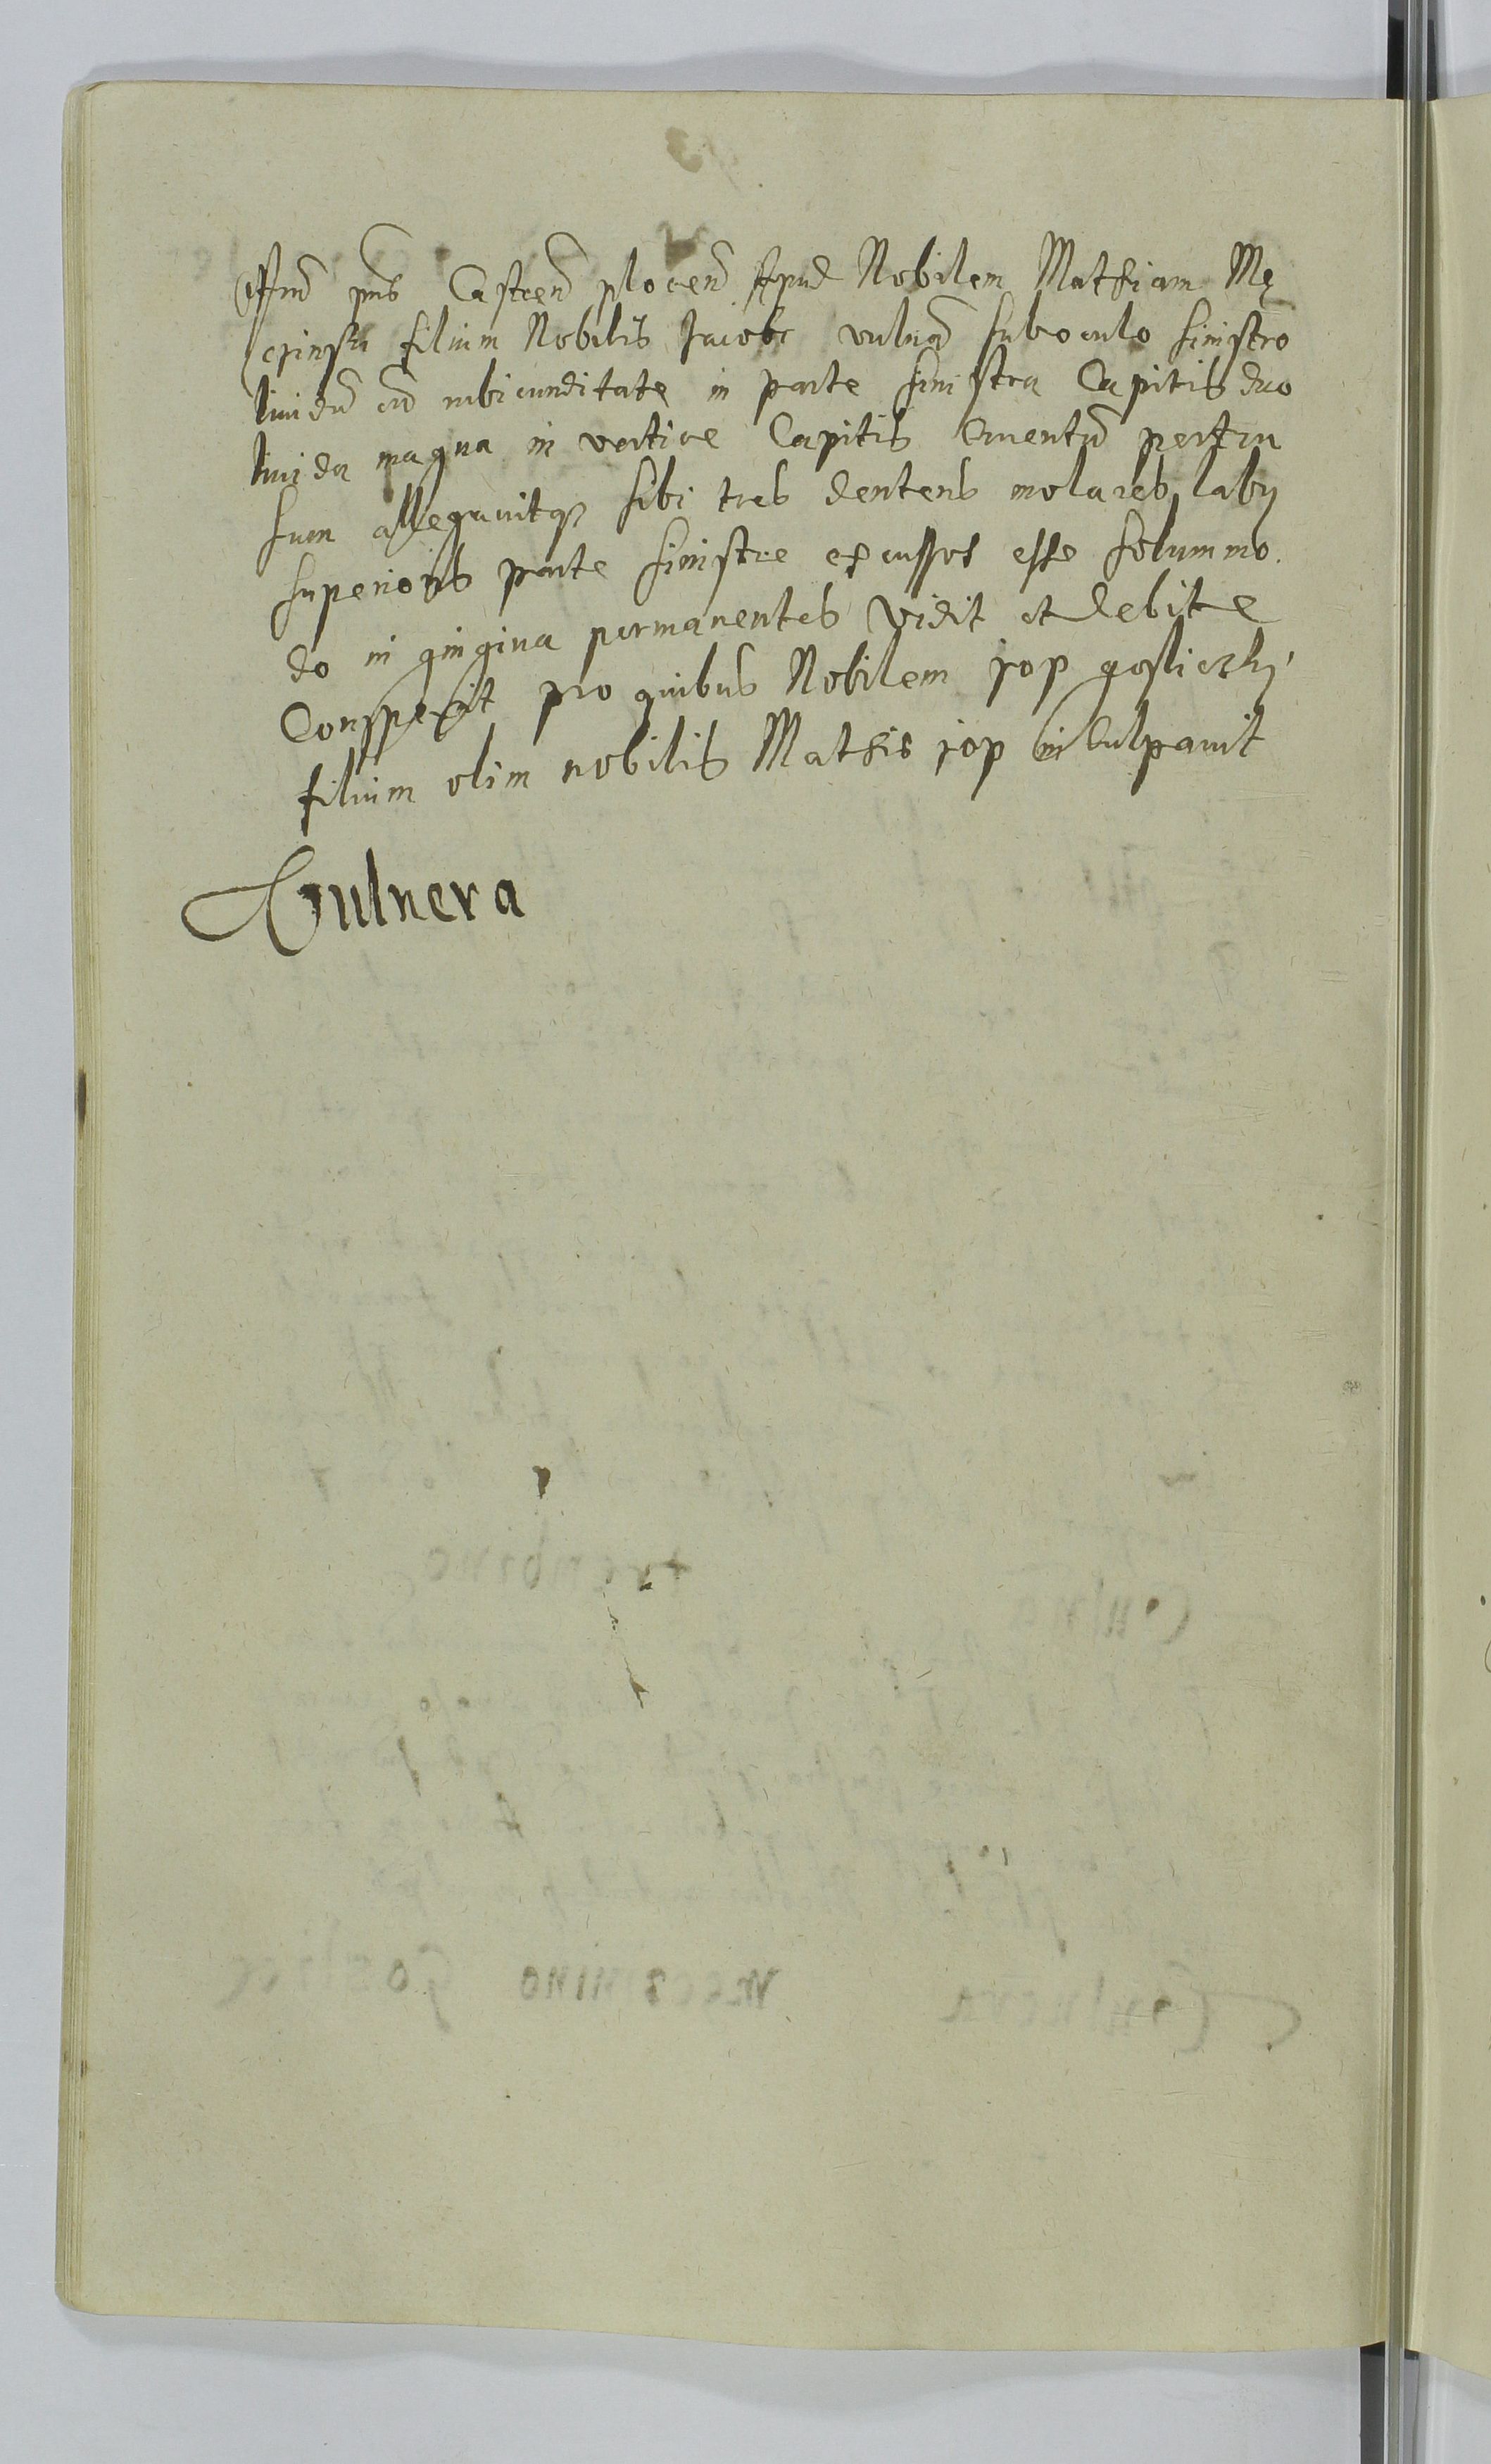 Offm̄ pn̄s Castren̄ plocen̄ Apud Nobilem Mathiam Mę
czinski filium Nobilis Jacobi vulnꝰ sub oculo sinistro
liuidū cū rubicunditate in parte sinistra Capitis duo
liuida magna in vertice Capitis Cruentū pertu
sum allegauitqꝫ sibi tres dentens molares labij
superioris parte sinistre excussos esse solummo.
do in gingiua permanentes Vidit et debite
Conspexit pro quibus Nobilem jop goslicski
filium olim nobilis Mathis jop inculpauit
Vulnera